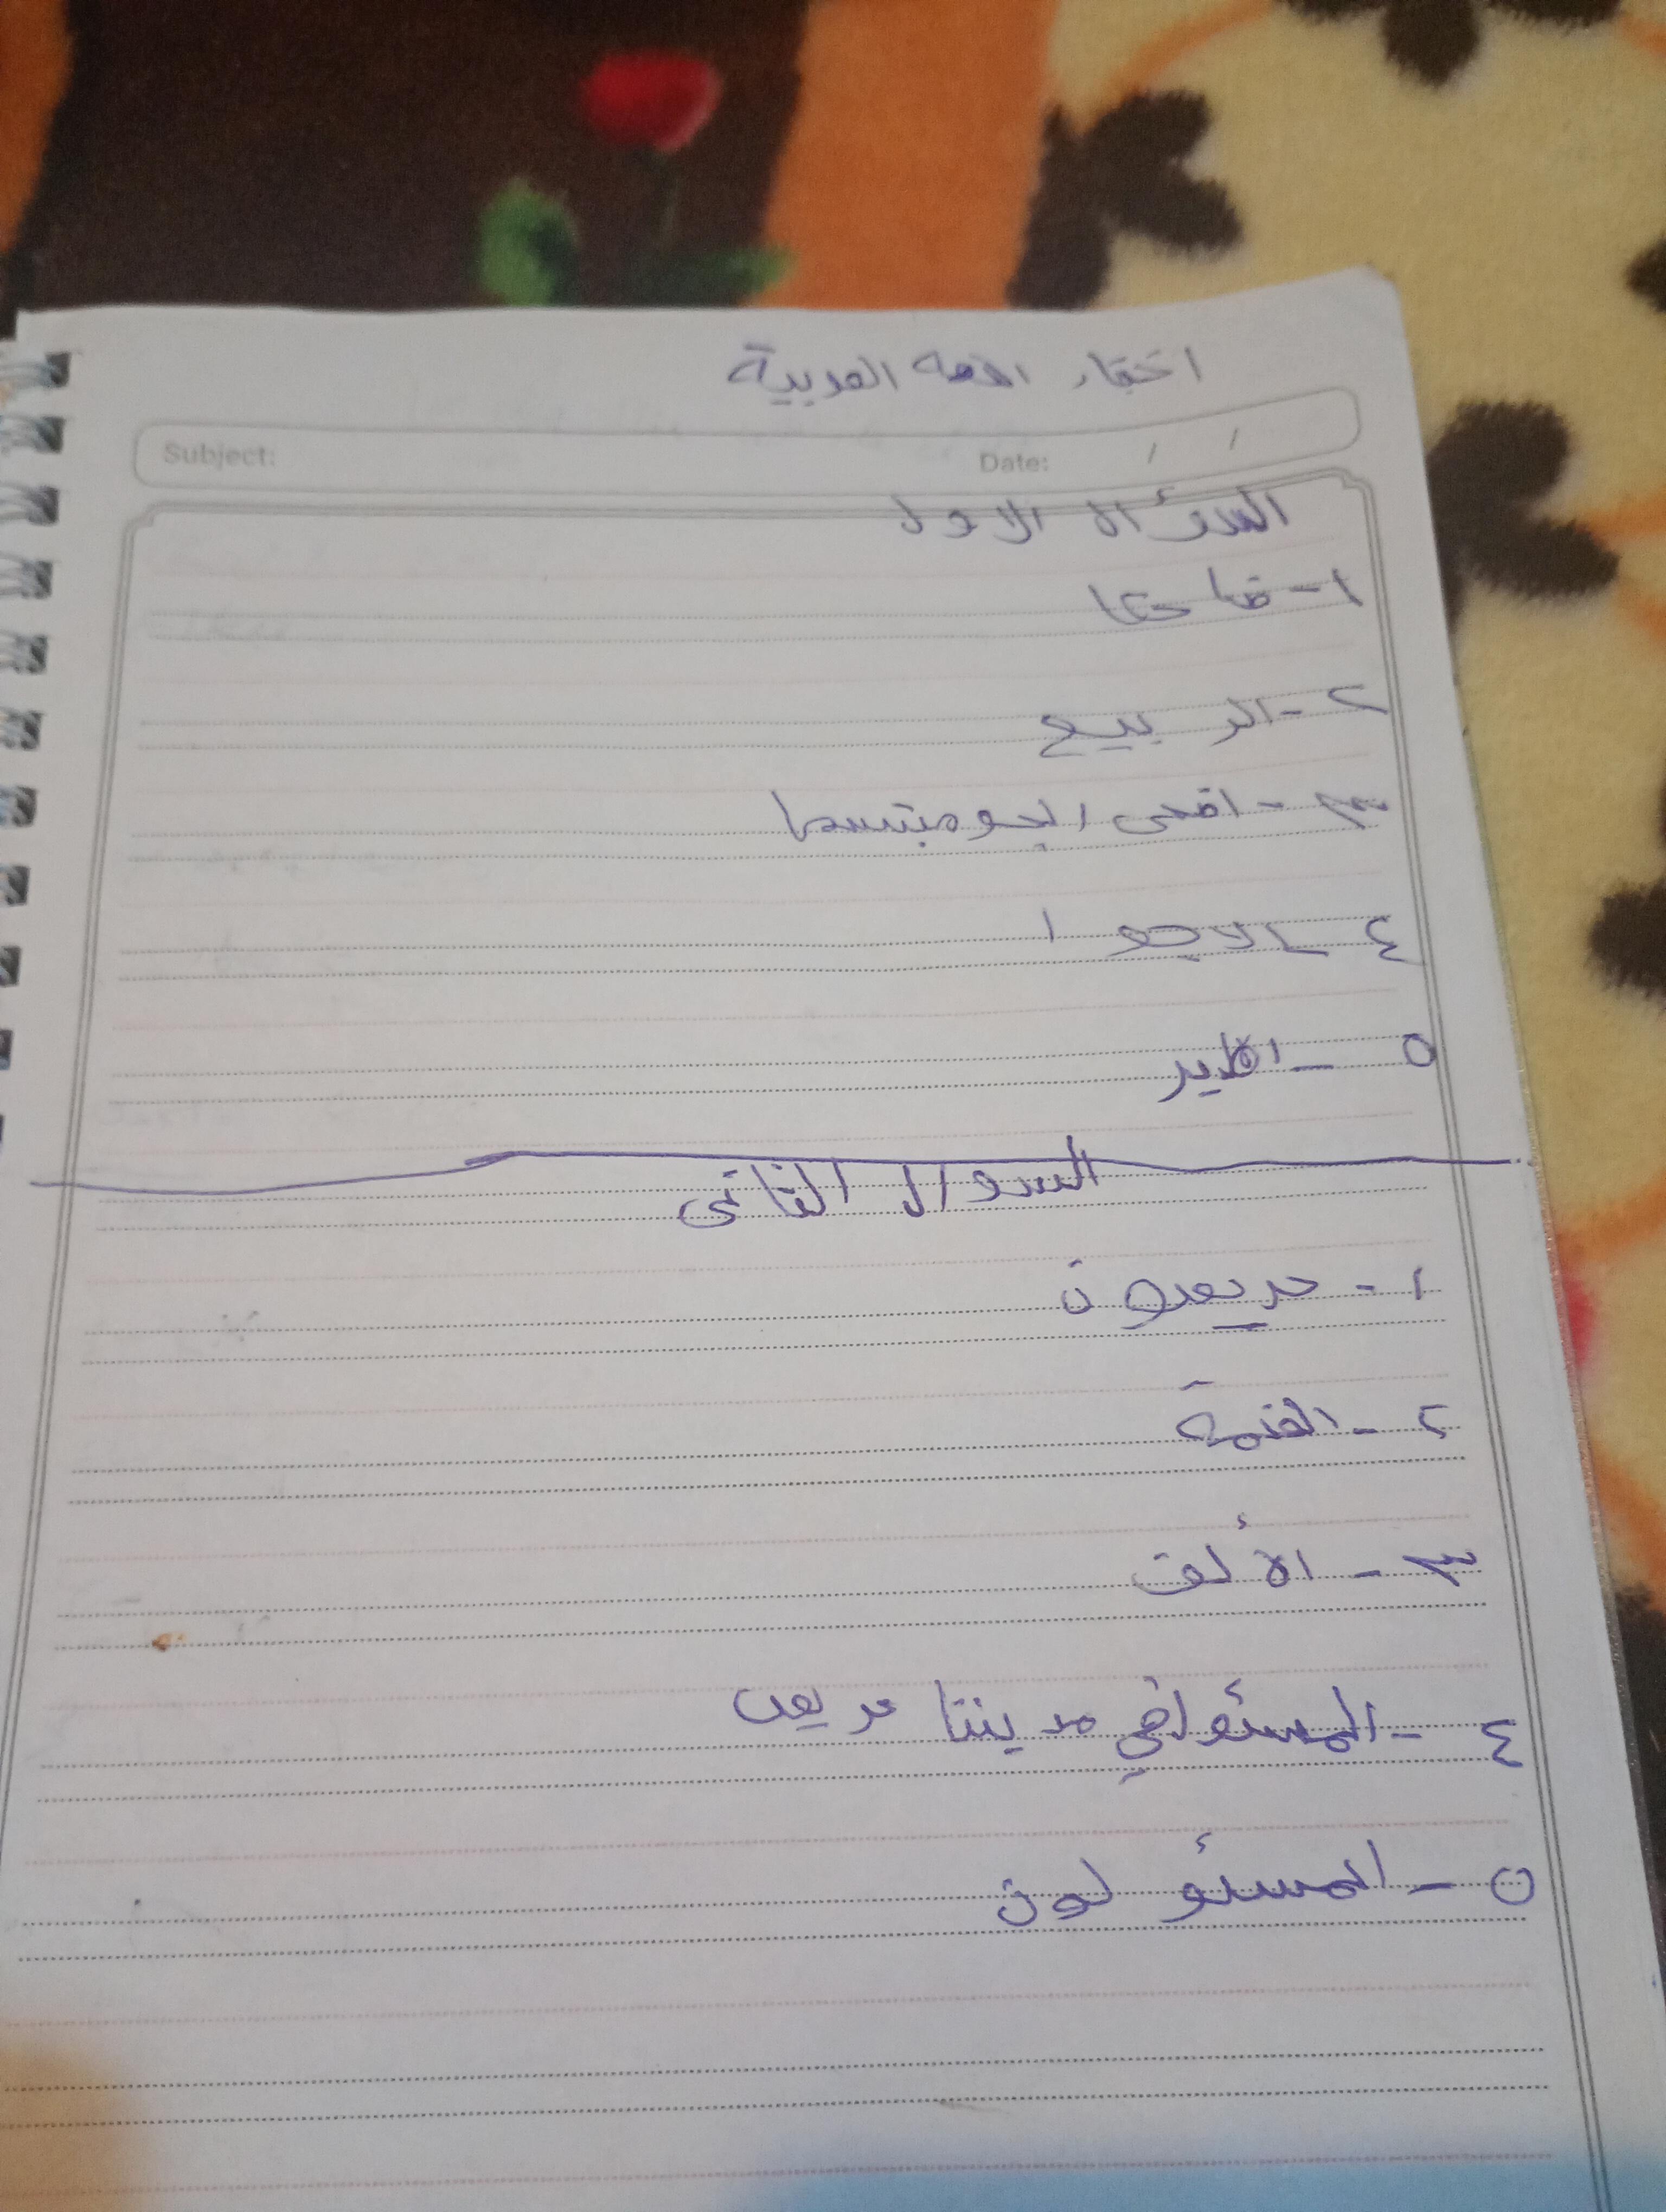 اختبار اللغه العربية
Subject: Date: / /
السؤال الاول
١- ضاحكا
٢- الربيع
٣- اضحى الجو مبتسما
٤- الاجوا
٥- الطير
السوال الثانى
١- حريصون
٢- الضمة
٣- الألف
٤- المسئول في مدينتنا حريص
٥- المسئولون